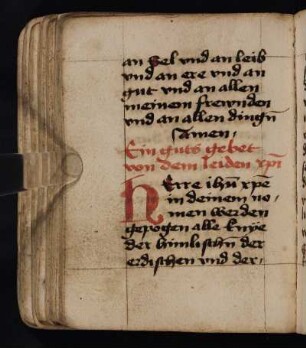 an Sel vnd an leib
vnd an ere vnd an
gut vnd an allen
meinem frewnden
vnd an allen dingn̄
Amen.
Ein guts gebet
von dem leiden xp̄i
HErre ihū xp̄e
in deinem na-
men werden
gepogen alle knýe
der himlischn̄ der
erdischen vnd der-